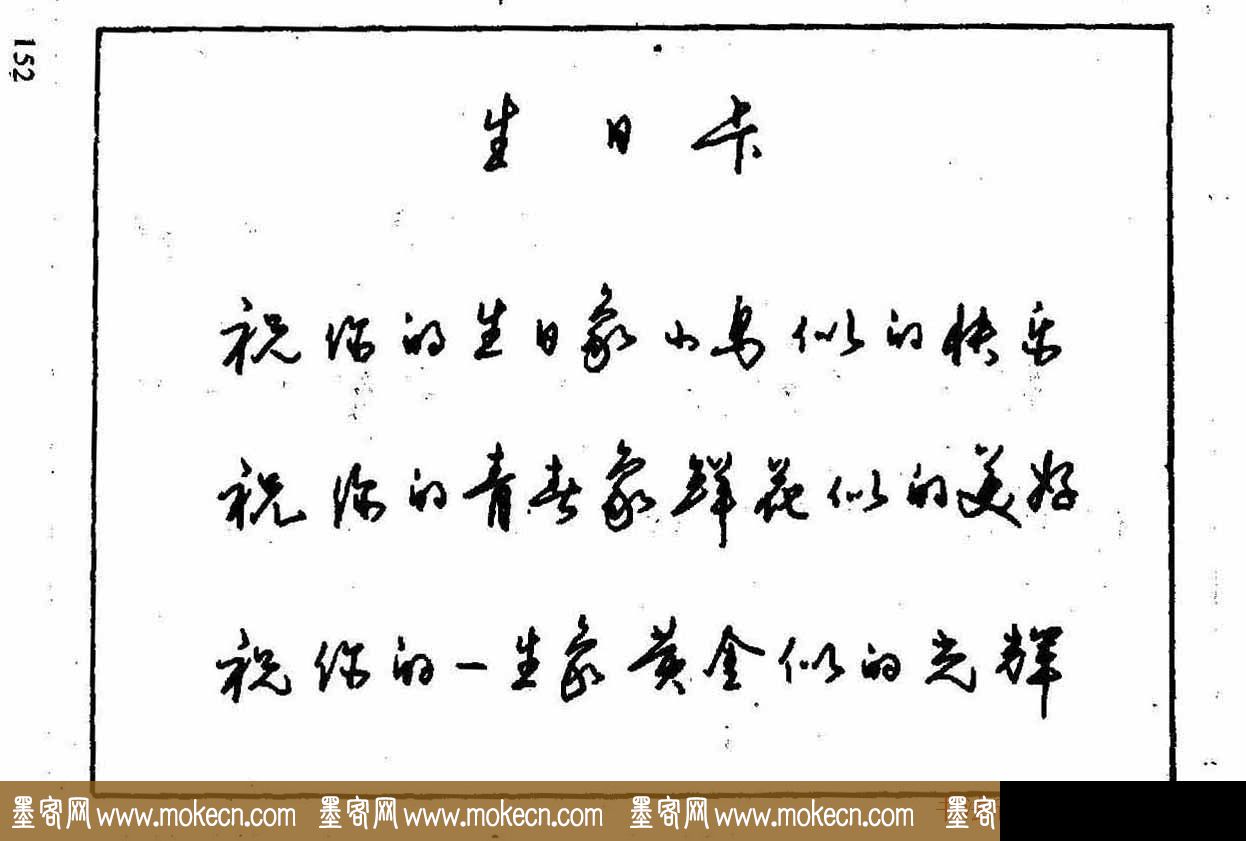 152
生日卡
祝你的生日象小鸟似的快乐
祝你的青春象鲜花似的美好
祝你的一生象黄金似的光辉
墨客网 www.mokecn.com 墨客网 www.mokecn.com 墨客网 www.mokecn.com 墨客